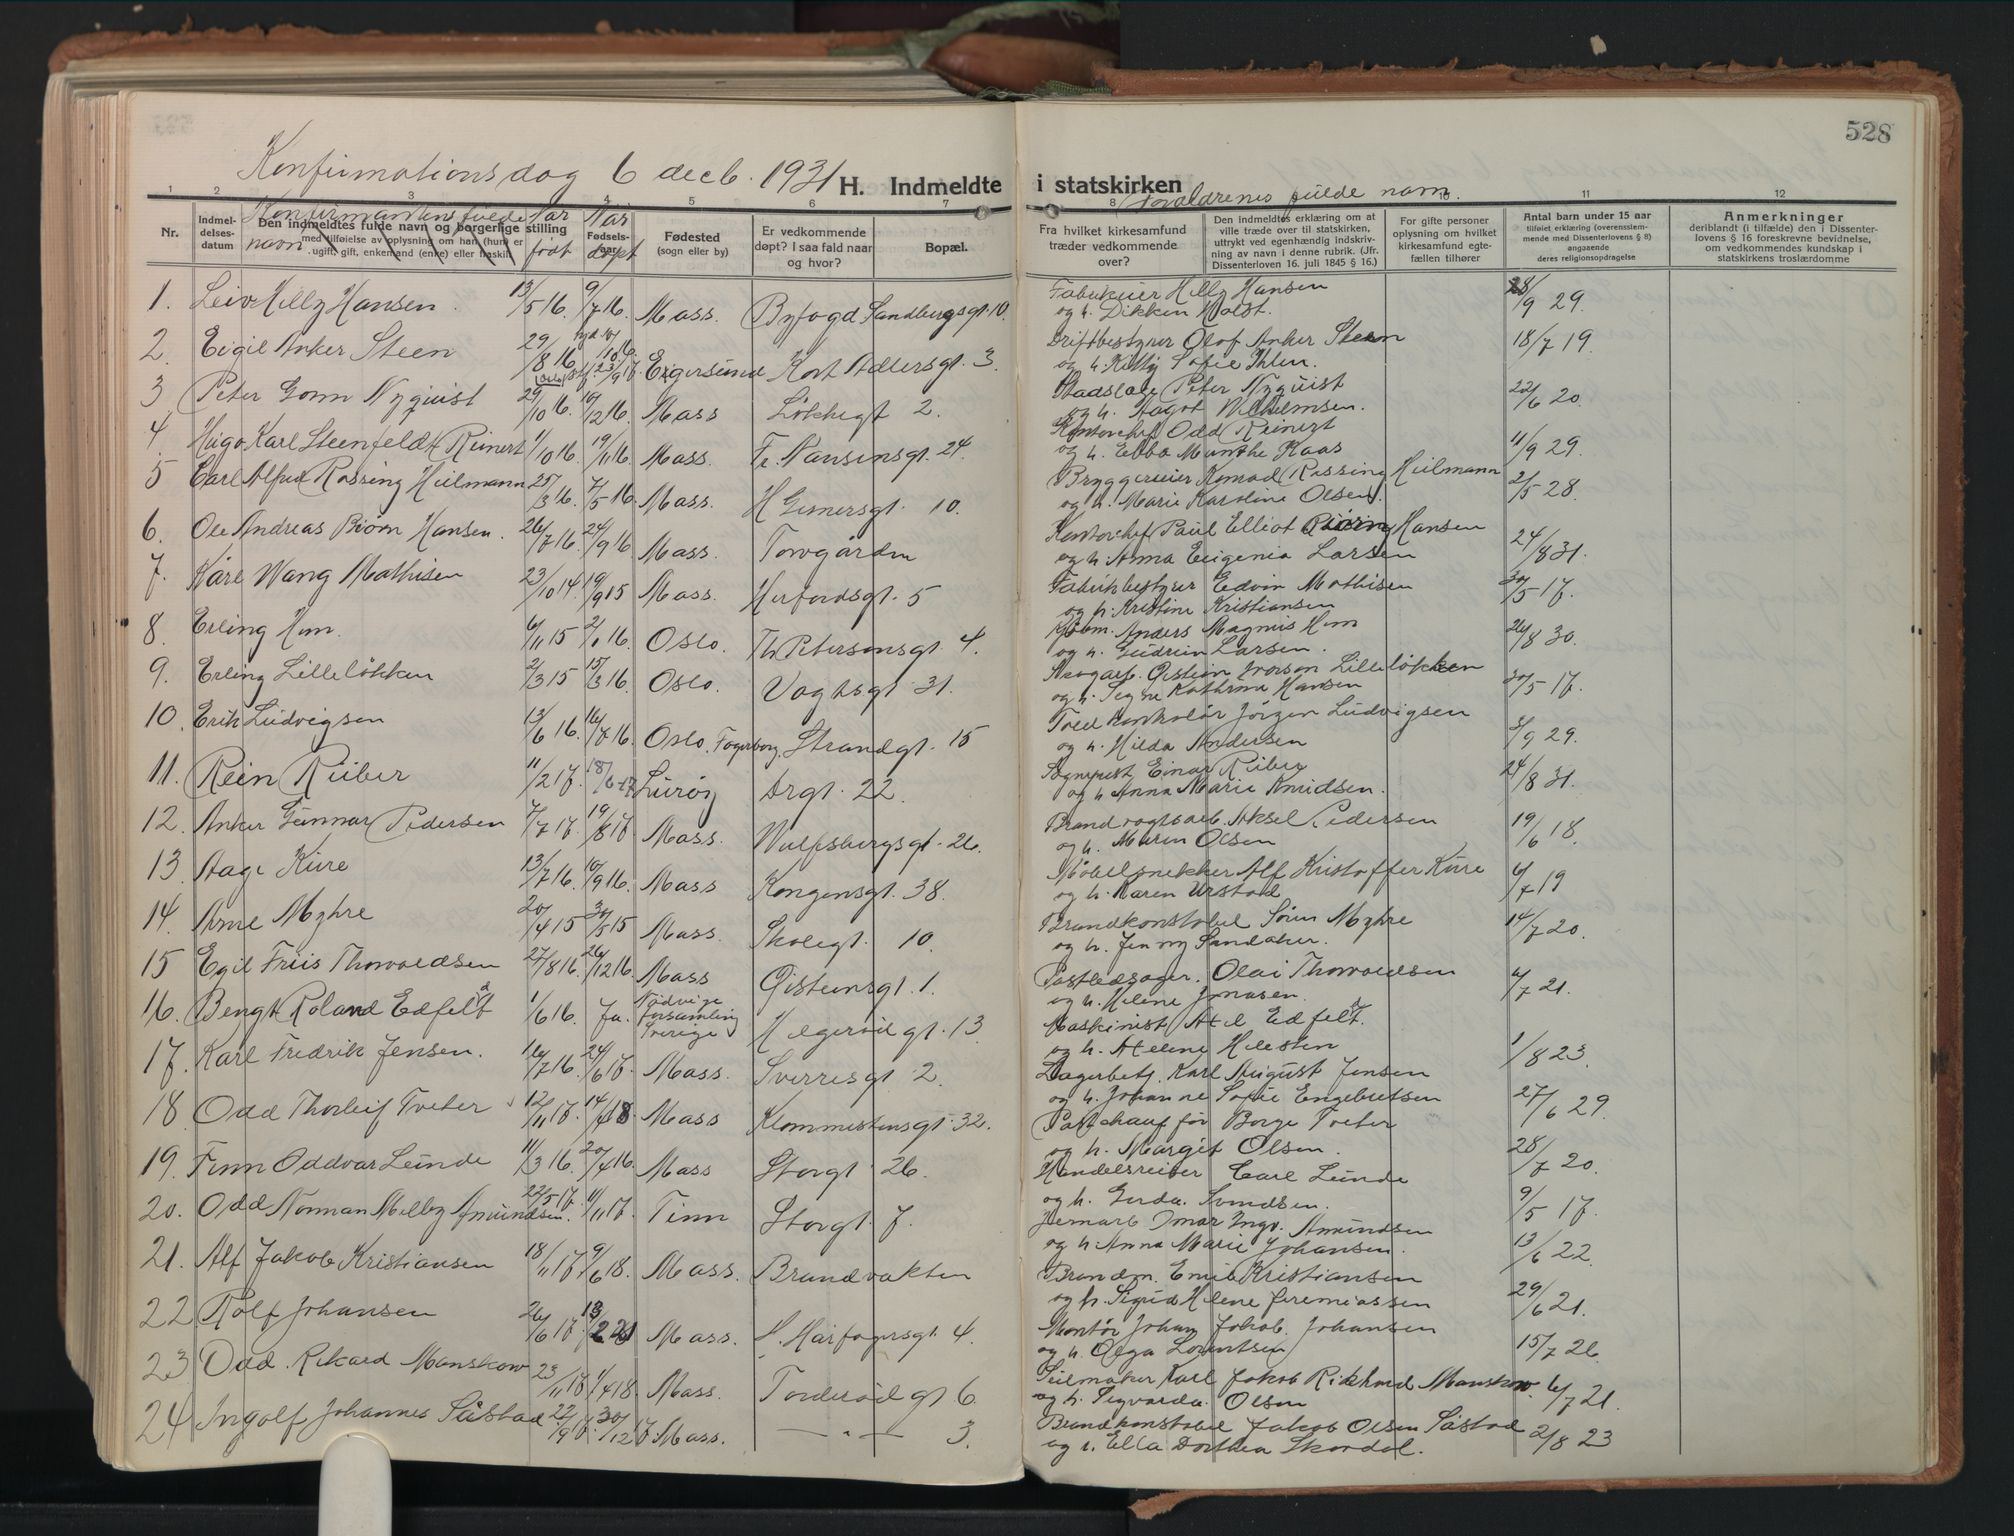 528
Konfirmationsdag 6 decb. 1931 H. Indmeldte i statskirken
1 2 3 4 5 6 7 8 10 11 12
Konfirmantens fulde navn Når født Når døpt Forældrenes fulde navn.
Nr.
Indmel-
delses-
datum
Den indmeldtes fulde navn og borgerlige stilling
med tilføielse av oplysning om han (hun) er
ugift, gift, enkemand (enke) eller fraskilt
Fødested
(sogn eller by)
Er vedkommende
døpt? I saa fald naar
og hvor?
Bopæl.
Fra hvilket kirkesamfund
træder vedkommende
over?
Den indmeldtes erklæring om at
ville træde over til statskirken,
uttrykt ved egenhændig indskriv-
ning av navn i denne rubrik. (Jfr.
Dissenterloven 16. juli 1845 § 16.)
For gifte personer
oplysning om hvilket
kirkesamfund egte-
fællen tilhører
Antal barn under 15 aar
tilføiet erklæring (overensstem-
mende med Dissenterlovens § 8)
angaaende
deres religionsopdragelse
Anmerkninger
deriblandt (i tilfælde) den i Dissenter-
lovens § 16 foreskrevne bevidnelse,
om vedkommendes kundskap i
statskirkens troslærdomme
1. Leiv Helly Hansen. 13/5 16. 9/7 16. Mass. Byfogd Sandbergsgt. 10. Fabrikeier Helly Hansen 28/9 29.
og h. Dikken Holst.
2. Eigil Anker Steen 29/8 16 Egersund Kort Adlersgt. 3. Driftbestyrer Olof Anker Steen 18/7 19.
og h. Kitty Sofie Ihlen.
3 Peter Gorm Nyquist 29/10 16. 10/12 16. Mass Løkkegt 2. Stadslæge Peter Nyquist 22/6 20.
og h. Aagot Wilhelmsen.
4. Hugo Karl Steenfeldt Reinert 1/10 16. 19/11 16. Mass. Fr. Nansensgt. 24. Kontorchef Odd Reinert 11/9 29.
og h. Ebba Munthe Kaas
5 Carl Alfred Rossing Heilmann 25/3 16. 7/5 16 Mass. H Gernersgt. 10. Bryggerieier Konrad Rossing Heilmann 2/5 28.
og h. Marie Karoline Olsen.
6. Ole Andreas Biørn Hansen. 26/7 16. 24/9 16 Mass. Torvgården Kontorchef Paul Elliot Biørn Hansen 24/8 31.
og h. Anna Eugenia Larsen
7. Kåre Wang Mathisen 23/10 14. 19/9 15 Mass. Herfordsgt. 5 Fabrikbestyrer Edvin Mathisen 30/5 17.
og h. Kristine Kristiansen
8. Erling Hem. 6/11 15 2/1 16. Oslo. Th Petersonsgt. 4. Kjøbm. Anders Magnus Hem 26/8 30.
og h. Gudrun Larsen.
9. Erling Lilleløkken 2/3 15 15/3 16. Oslo. Vogtsgt. 31. Skogarb. Øistein Iverson Lilleløkken 30/5 17.
og h. Signe Kathrine Hansen
10. Erik Ludvigsen 13/6 16. 16/7 16. Oslo. Fagerborg. Strandgt. 15 Toldkontrolør Jörgen Ludvigsen 3/9 29.
og h. Hilda Andersen
11. Rein Riiber 11/2 17. 18/6-17 Lurøy Drgt. 22. Sogneprest Einar Riiber 24/8 31.
og h Anna Marie Knudsen.
12. Anker Gunnar Pedersen 7/7 17. 19/8 17 Mass. Wulfsbergsgt. 26. Brandvagtsarb. Aksel Pedersen 19/6 18.
og h. Maren Olsen
13. Aage Kure 13/7 16. 10/9 16. Mass Kongensgt. 38. Møbelsnekker Alf Kristoffer Kure 6/7 19
og h. Karen Urstad
14. Arne Myhre 20/4 15 30/5 15 Mass. Skolegt. 10. Brandkonstabel Sören Myhre 14/7 20.
og h. Jenny Sandaker.
15 Egil Friis Thorvaldsen 27/8 16. 26/12 16. Mass Øistensgt. 1. Postledsager. Olai Thorvaldsen 6/7 21.
og h. Helene Jonasen.
16. Bengt Roland Edfeldt 1/6 16. Ja. Nødvige forsamling Sverige Helgerødgt. 13 Maskinist Axel Edfeldt.
og h. Helene Helsten 1/8 23.
17. Karl Fredrik Jensen. 16/7 16. 24/6 17. Mass. Sverresgt. 2. Lagerbetj. Karl August Jensen
og h. Johanne Sofie Engebretsen 27/6 29.
18. Odd Thorleif Tveter 12/11 17. 14/4 18 Mass Klommestensgt. 32. Postchauffør Borge Tveter
og h. Margit Olsen. 28/7 20.
19. Finn Oddvar Lunde 11/3 16. 20/4 16. Mass Storgt. 26. Handelsreiser Carl Lunde
og h. Gerda. Svendsen. 9/5 17.
20. Odd Norman Melby Amundsen. 22/5 17 11/11 17. Tinn Storgt. 7. Jernarb Omar Ingv. Amundsen
og h. Anna Marie Johansen. 13/6 22.
21. Alf Jakob Kristiansen 18/11 17 9/6 18. Mass. Brandvakten Brandm. Emil Kristiansen
og h. Sigrid Helene Jeremiassen 29/6 21.
22. Rolf Johansen 26/6 17. Mass. H. Hårfagersgt. 4. Montør Johan Jakob. Johansen
og h. Olga Lorentsen 15/7 26.
23. Odd. Rikard Manskow 23/11 17 1/4 18. Mass. Torderødgt 6. Seilmaker Karl Jakob Rikhard Manskow. 6/7 21.
og h. Sigvarda. Olsen
24 Ingolf Johannes Såstad 22/9 17. 30/12 17 Mass. — " — 3. Brandkonstabel Jakob Olsen Såstad 2/8 23
og h. Ella Dorthea Skordal.